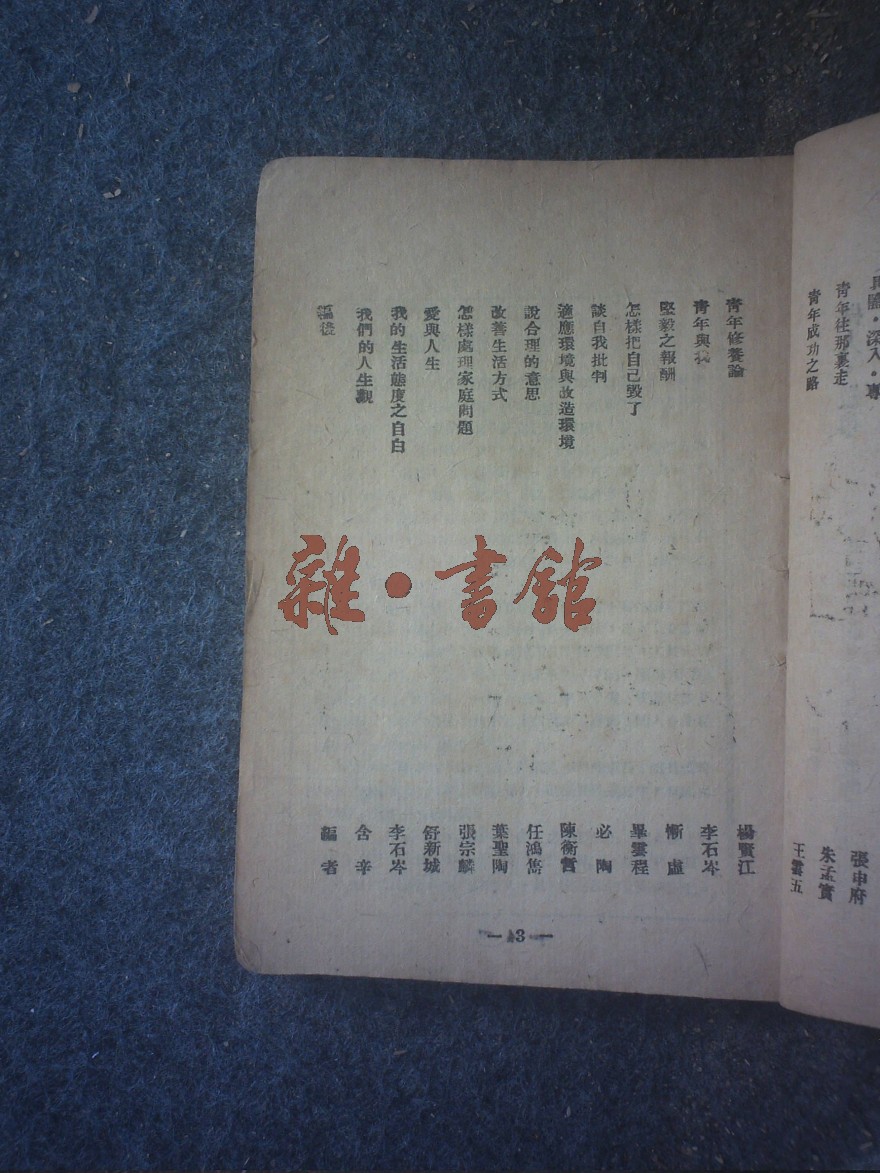 具體・深入・專
張申府
青年往那裏走
朱孟實
青年成功之路
王雲五
青年修養論
楊賢江
青年與我
李石岑
堅毅之報酬
慚虛
怎樣把自己毀了
畢雲程
談自我批判
必陶
適應環境與改造環境
陳衡哲
說合理的意思
任鴻雋
改善生活方式
葉聖陶
怎樣處理家庭問題
張宗麟
愛與人生
舒新城
我的生活態度之自白
李石岑
我們的人生觀
含辛
編後
編者
— 3 —
雜・書館